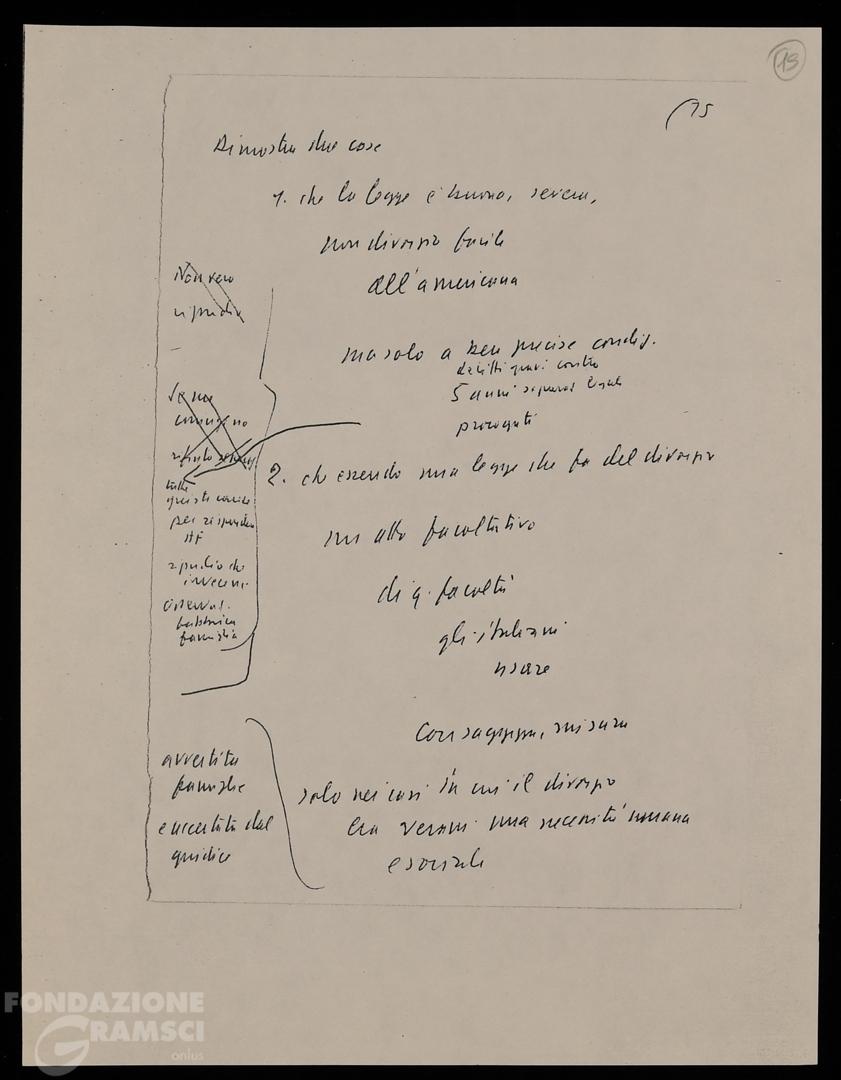 19
15
Dimostra due cose
1. che la legge è buona, severa,
non divorzio facile
all'americana
Non vero
ripudio
ma solo a ben precise condiz.
delitti gravi contro
5 anni separaz. legale
prorogati
senza
rifiuto
2. che essendo una legge che fa del divorzio
tutte
queste
per rispondere
AF
ripudio che
invece
osservaz.
famiglia
un atto facoltativo
di q. facoltà
gli italiani
usare
con saggezza, misura
avvertita
famiglie
e accertata dal
giudice
solo nei casi in cui il divorzio
era una necessità umana
e sociale
FONDAZIONE
GRAMSCI
onlus